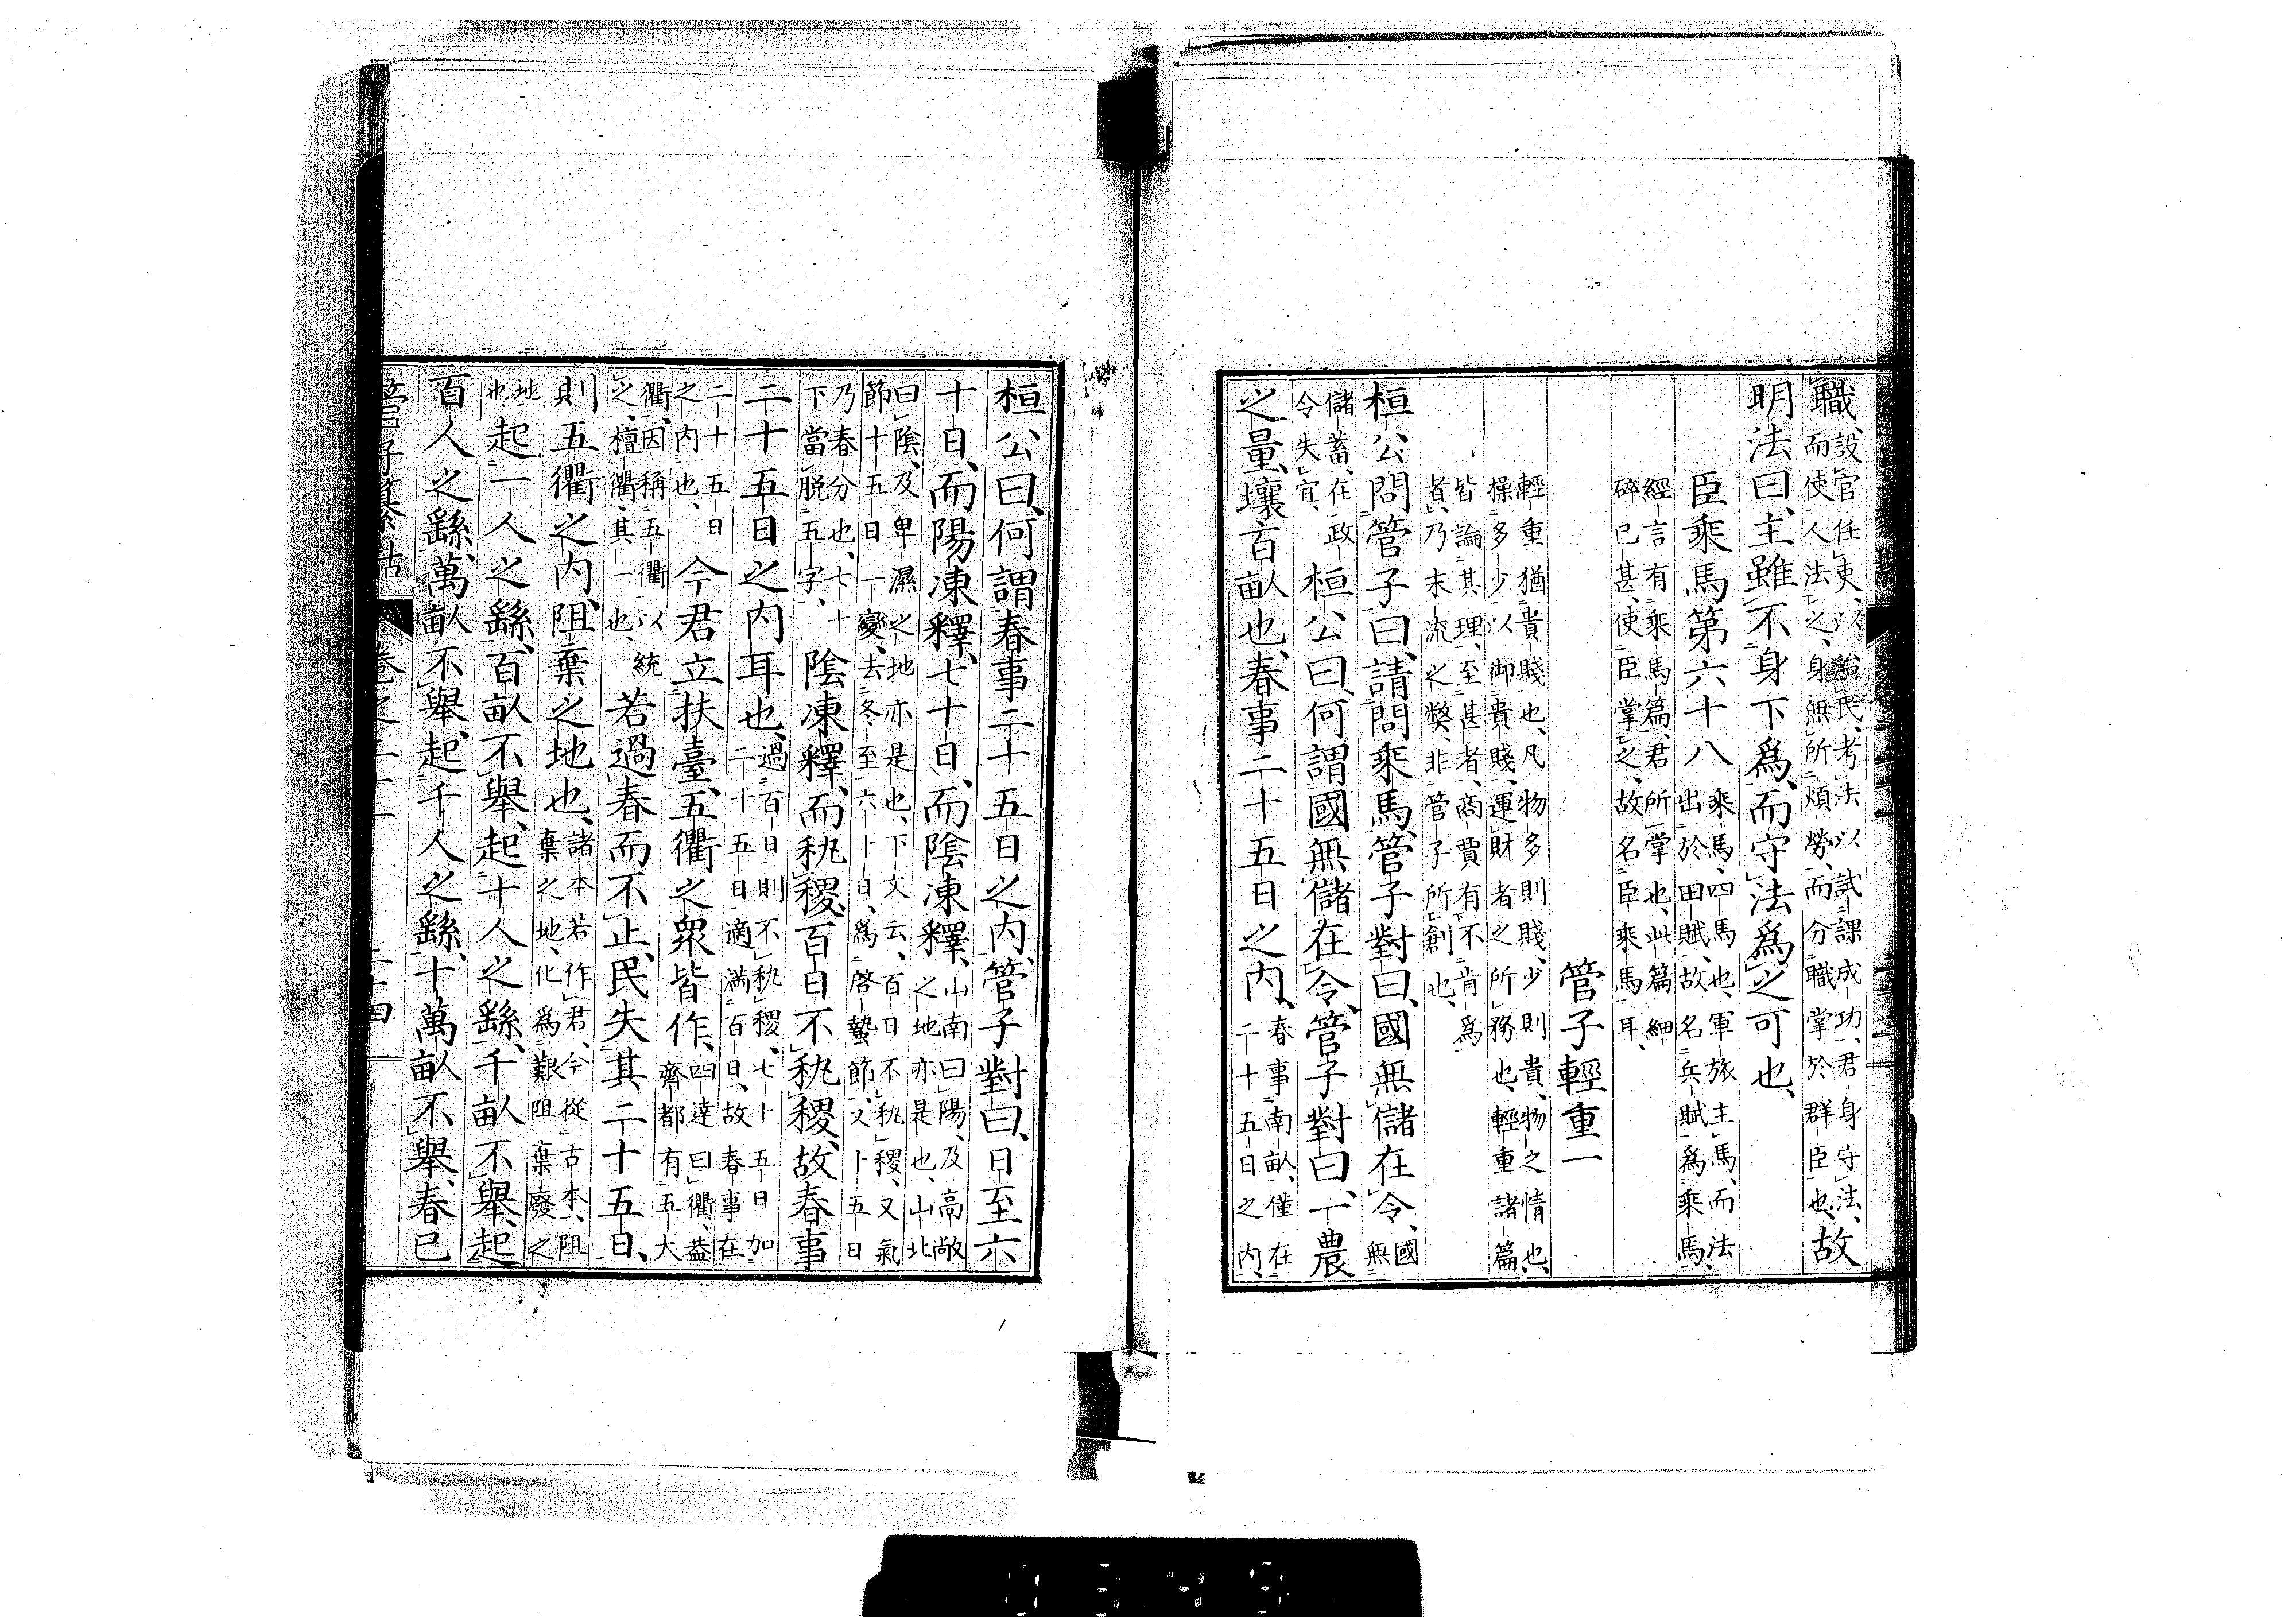 職、設官任吏、以治民、考法以試課成功、君身守法、
而使人法之、身無所煩勞、而分職掌於群臣也、故
明法曰、主雖不身下爲、而守法爲之可也、
臣乘馬第六十八 乘馬、四馬也、軍旅主馬、而法
出於田賦、故名兵賦爲乘馬、
經言有乘馬篇、君所掌也、此篇細
碎已甚、使臣掌之、故名臣乘馬耳、
管子輕重一
輕重猶貴賤也、凡物多則賤、少則貴、物之情也、
操多少以御貴賤、運財者之所務也、輕重諸篇、
皆論其理、至甚者、商賈有不肯爲
者、乃末流之獘、非管子所創也、
桓公問管子曰、請問乘馬、管子對曰、國無儲在令、國
無
儲蓄、在政
令失宜、桓公曰、何謂國無儲在令、管子對曰、一農
之量、壤百畝也、春事二十五日之内、春事南畝、僅在
二十五日之内、
桓公曰、何謂春事二十五日之内、管子對曰、日至六
十日、而陽凍釋、七十日、而陰凍釋、山南曰陽、及高敞
之地亦是也、山北
曰陰、及卑濕之地亦是也、下文云、百日不秇稷、又氣
節十五日一變、去冬至六十日、爲啓蟄節、又十五日
乃春分也、七十
下當脱五字、陰凍釋、而秇稷、百日不秇稷、故春事
二十五日之内耳也、過百日則不秇稷、七十五日加
二十五日適滿百日、故春事在
二十五日
之内也、今君立扶臺、五衢之衆皆作、四達曰衢、葢
齊都有五大
衢、因稱五衢以統
之、檀衢、其一也、若過春而不止、民失其二十五日、
則五衢之内、阻棄之地也、諸本若作君、今從古本、阻
棄之地、化爲艱阻棄廢之
地
也、起一人之繇、百畝不舉、起十人之繇、千畝不舉、起
百人之繇、萬畝不舉、起千人之繇、十萬畝不舉、春已
管子纂詁 卷之二十